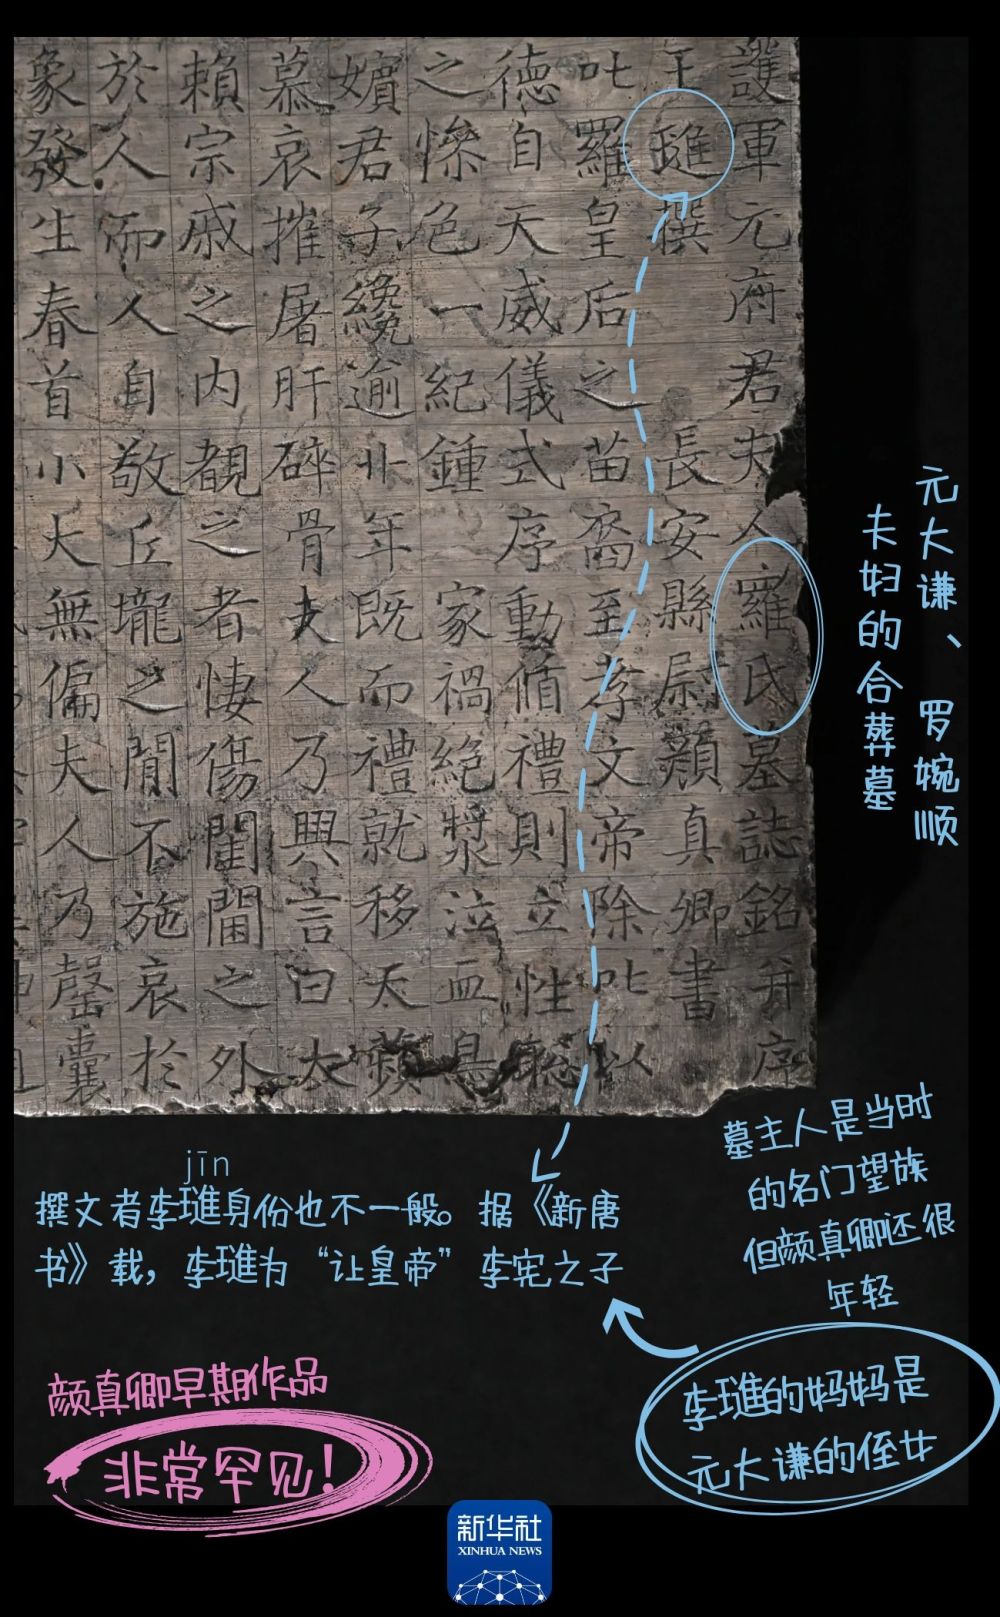 護軍元府君夫人羅氏墓誌銘并序
王㻸撰 長安縣尉顏真卿書
叱羅皇后之苗裔至孝文帝除叱以
德自天威儀式序動循禮則立性聡
之慘色一紀鍾 家禍絕漿泣血
嬪君子纔逾卄年既而禮就移天蘋
慕哀摧屠肝碎骨夫人乃興言曰大
賴宗戚之內覩之者悽傷閨閫之外
於人而人自敬丘壠之間不施哀於
象發生春首小大無偏夫人乃罄囊
元大谦、罗婉顺
夫妇的合葬墓
墓主人是当时
的名门望族
但颜真卿还很
年轻
jīn
撰文者李琎身份也不一般。据《新唐
书》载，李琎为“让皇帝”李宪之子
李琎的妈妈是
元大谦的侄女
颜真卿早期作品
非常罕见！
新华社
XINHUA NEWS